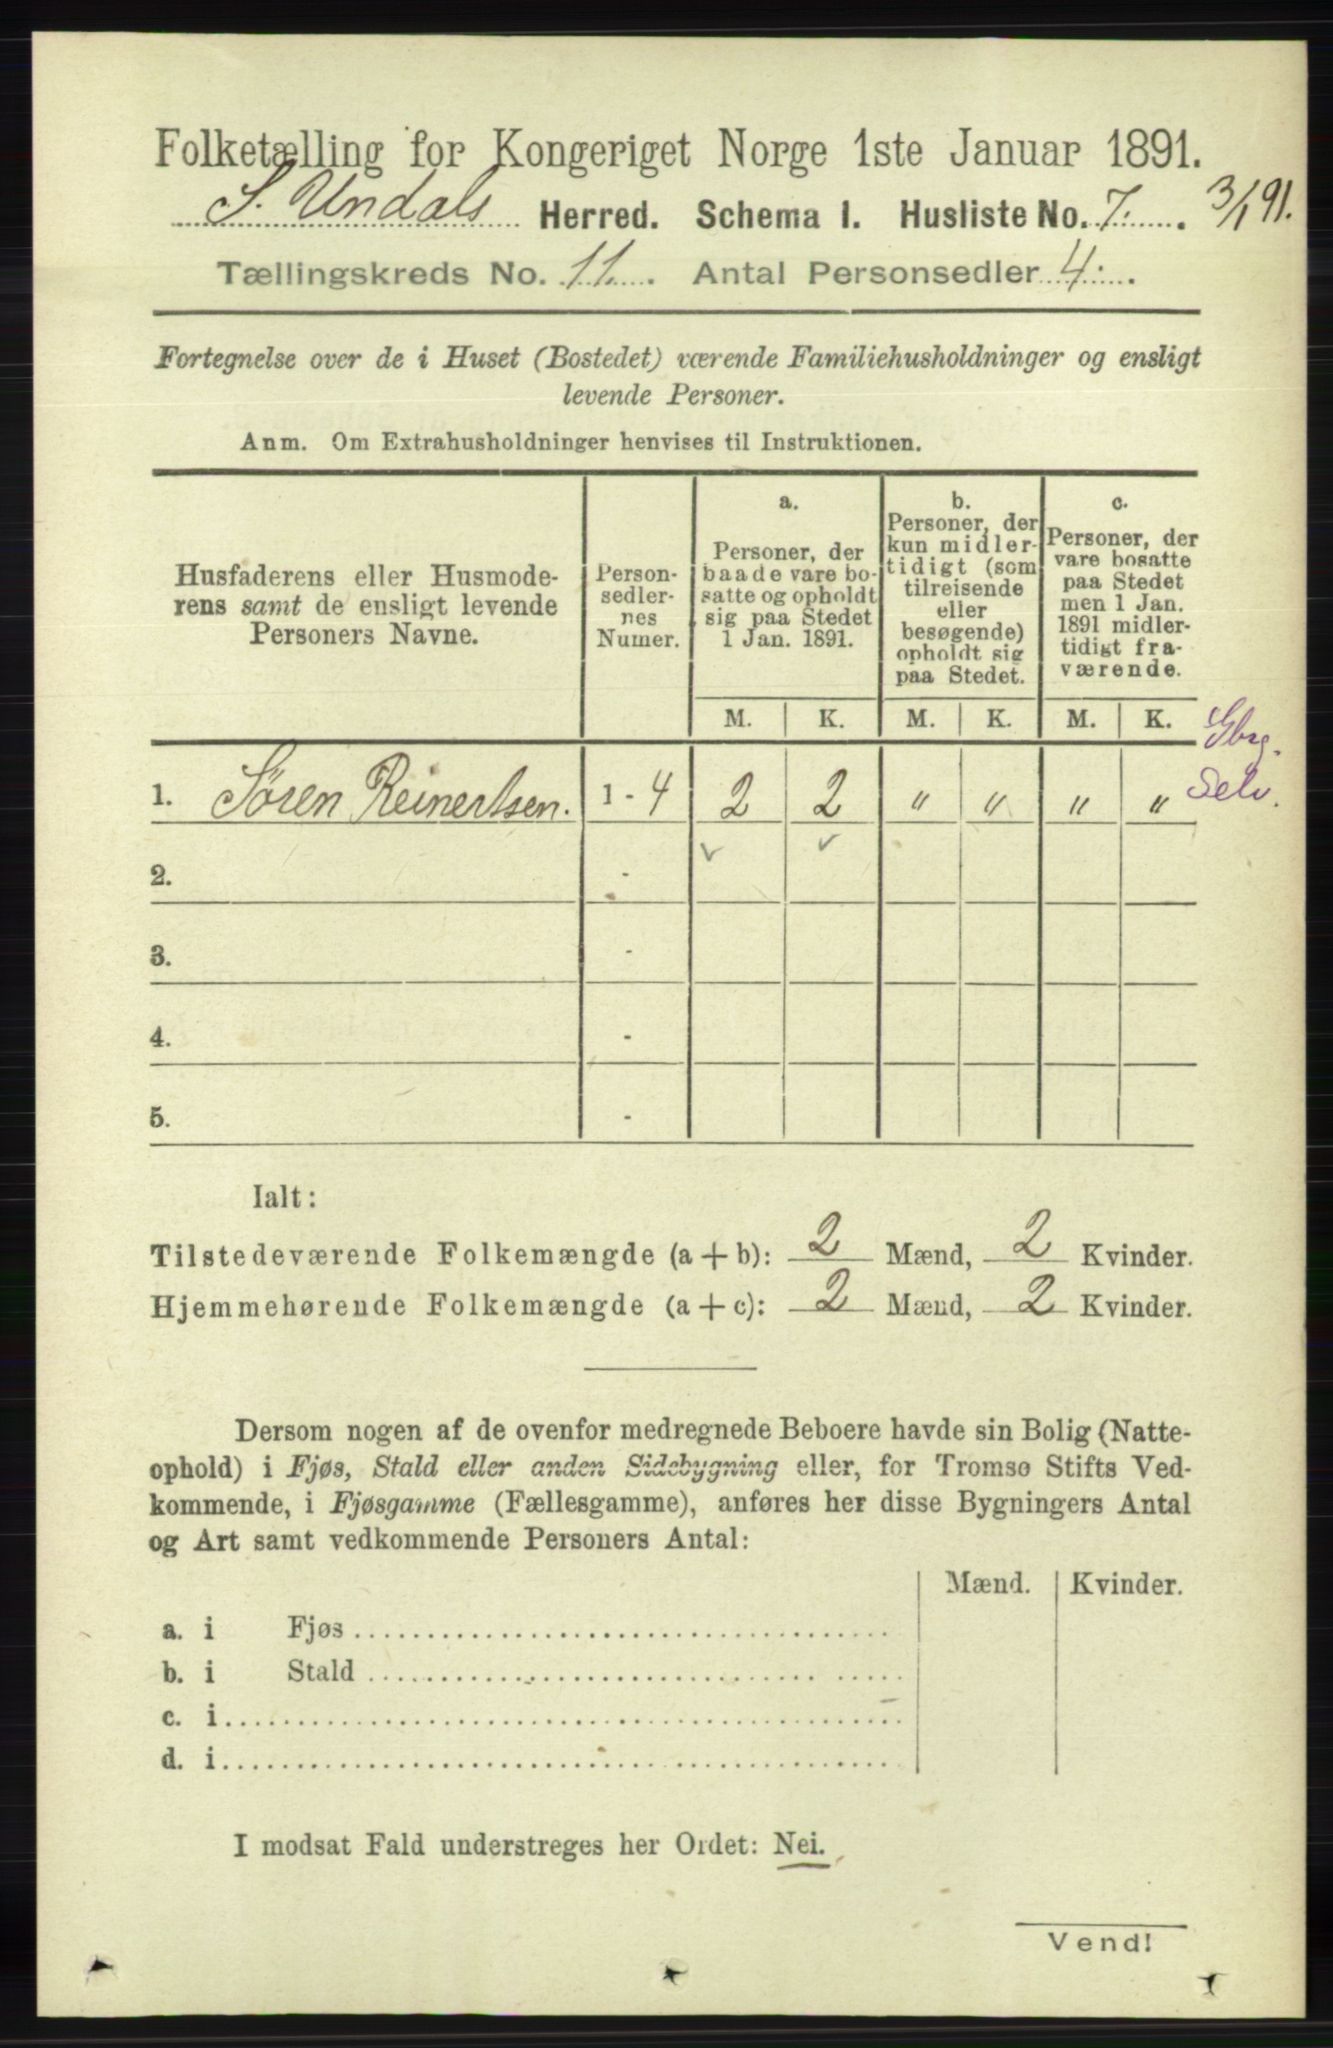 Folketælling for Kongeriget Norge 1ste Januar 1891.
S. Undals Herred. Schema 1. Husliste No. 7. 3/1 91.
Tællingskreds No. 11. Antal Personsedler 4.
Fortegnelse over de i Huset (Bostedet) værende Familiehusholdninger og ensligt
levende Personer.
Anm. Om Extrahusholdninger henvises til Instruktionen.
Husfaderens eller Husmode-
rens samt de ensligt levende
Personers Navne.
Person-
sedler-
nes
Numer.
a.
Personer, der
baade vare bo-
satte og opholdt
sig paa Stedet
1 Jan. 1891.
b.
Personer, der
kun midler-
tidigt (som
tilreisende
eller
besøgende)
opholdt sig
paa Stedet.
c.
Personer, der
vare bosatte
paa Stedet
men 1 Jan.
1891 midler-
tidigt fra-
værende.
M. K. M. K. M. K.
Gbrg.
Selv.
1. Søren Reinertsen. 1 - 4 2 2 " " " "
2. -
3. -
4. -
5. -
Ialt:
Tilstedeværende Folkemængde (a + b): 2 Mænd, 2 Kvinder.
Hjemmehørende Folkemængde (a + c): 2 Mænd, 2 Kvinder.
Dersom nogen af de ovenfor medregnede Beboere havde sin Bolig (Natte-
ophold) i Fjøs, Stald eller anden Sidebygning eller, for Tromsø Stifts Ved-
kommende, i Fjøsgamme (Fællesgamme), anføres her disse Bygningers Antal
og Art samt vedkommende Personers Antal:
Mænd. Kvinder.
a. i Fjøs
b. i Stald
c. i
d. i
I modsat Fald understreges her Ordet: Nei.
Vend!